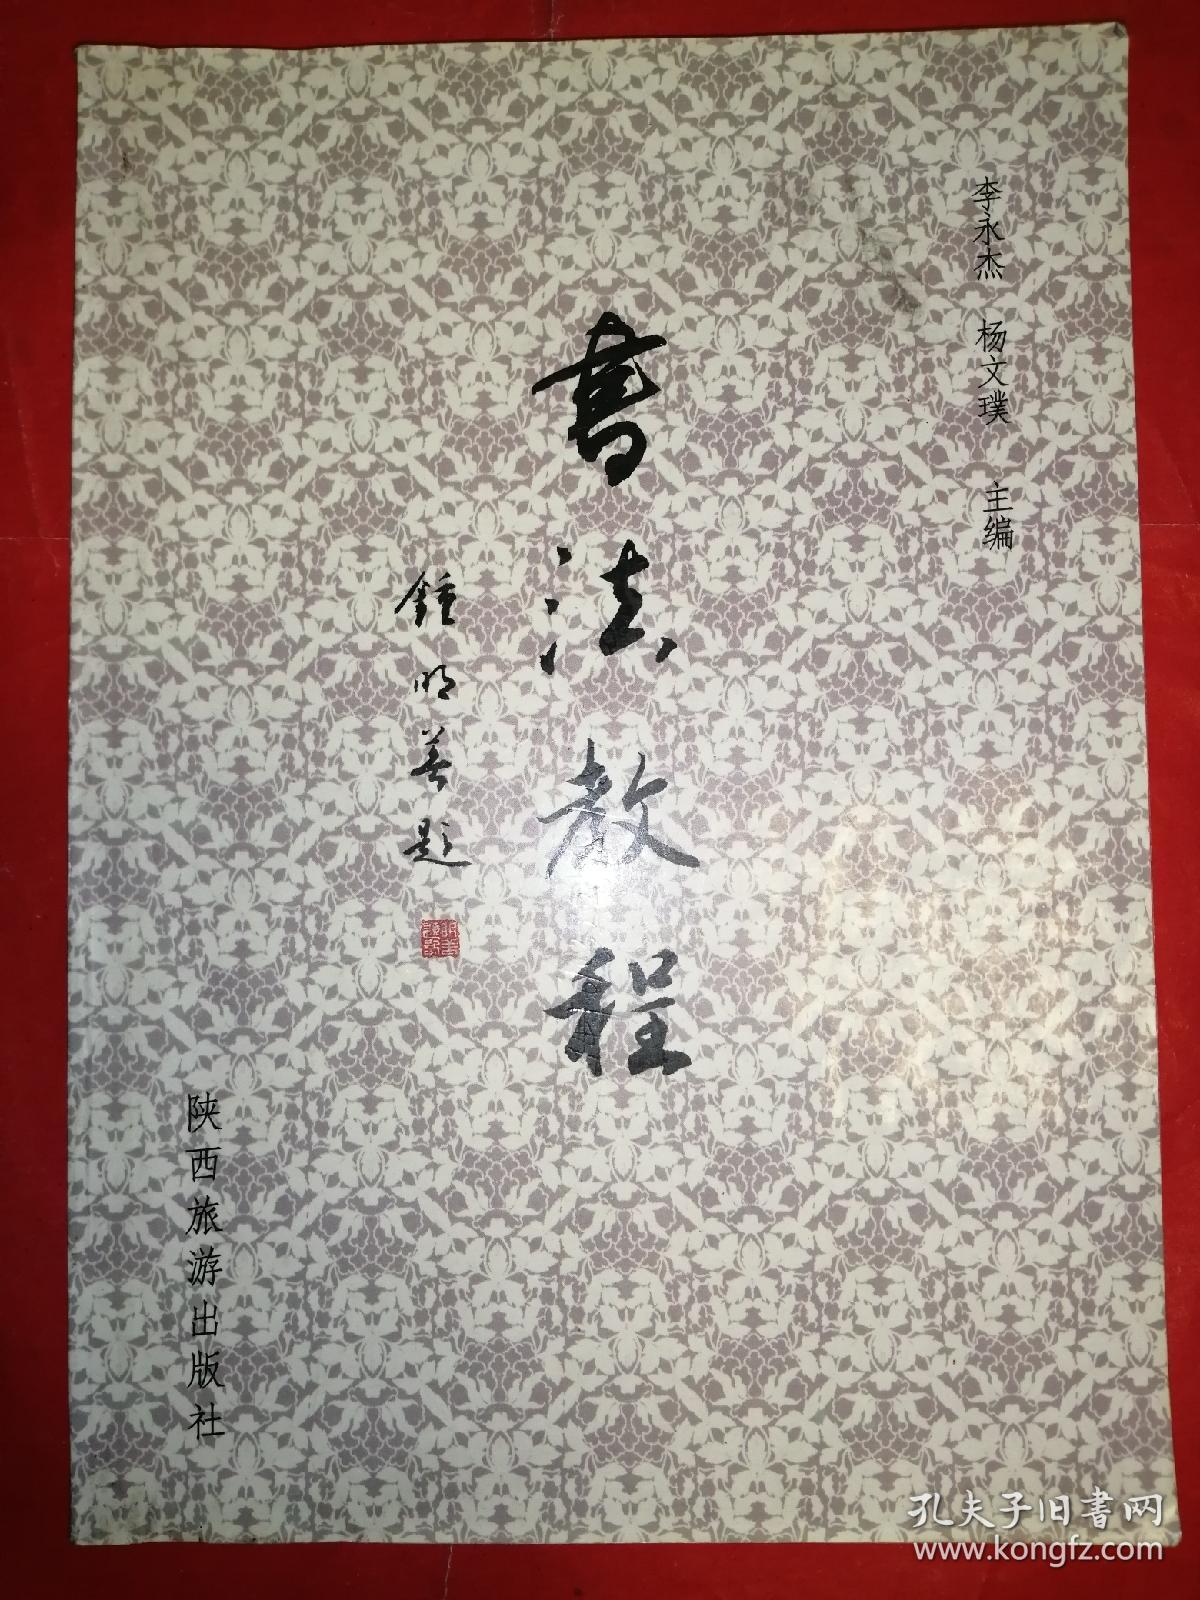 李永杰 杨文璞 主编
書法教程
鍾明善题
陕西旅游出版社
孔夫子旧書网
www.kongfz.com